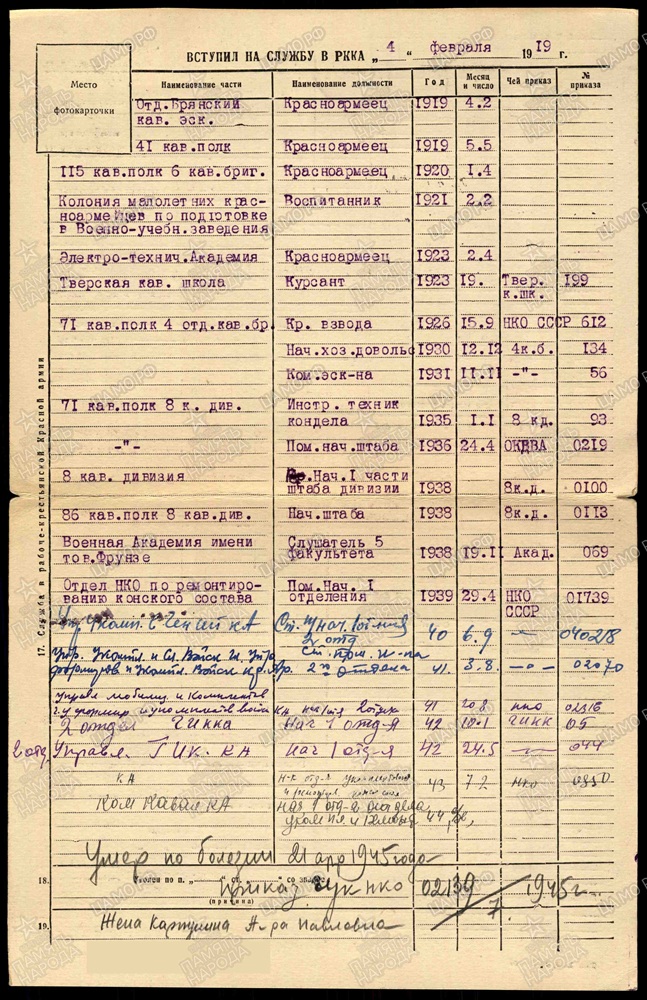 ВСТУПИЛ НА СЛУЖБУ В РККА „ 4 “ февраля 1919 г.
Место фотокарточки
Наименование части Наименование должности Год Месяц и число Чей приказ № приказа
Отд.Брянский Красноармеец 1919 4.2
кав. эск.
41 кав.полк Красноармеец 1919 5.5
115 кав.полк 6 кав.бриг. Красноармеец 1920 1.4
Колония малолетних крас- Воспитанник 1921 2.2
ноармейцев по подготовке
в Военно-учебн.заведения
Электро-технич.Академия Красноармеец 1923 2.4
Тверская кав. школа Курсант 1923 19. Твер. 199
к.шк.
71 кав.полк 4 отд.кав.бр. Кр. взвода 1926 15.9 НКО СССР 612
Нач.хоз.довольс 1930 12.12 4к.б. 134
Ком.эск-на 1931 11.11 -"- 56
71 кав.полк 8 к. див. Инстр. техник
кондела 1935 1.1 8 кд. 93
-"- Пом.нач.штаба 1936 24.4 ОКДВА 0219
8 кав. дивизия Нач.1 части
штаба дивизии 1938 8к.д. 0100
86 кав.полк 8 кав.див. Нач.штаба 1938 8к.д. 0113
Военная Академия имени Слушатель 5
тов.Фрунзе факультета 1938 19.11 Акад. 069
Отдел НКО по ремонтиро- Пом.Нач. 1
ванию конского состава отделения 1939 29.4 НКО 01739
СССР
40 6.9 040218
2 отд
41. 3.8. -о- 02070
2го отдела
41 20.8 нко 02316
2 отдел ГИККА Нач 1 отд-я 42 10.1 ГИКК 05
2 отд. Управл. ГИК. КА нач 1 отд-я 42 24.5 044
КА 43 7 2 НКО 0850
Ком Кавал КА нач 1 отд-я отдела
44
Умер по болезни 21 апр 1945 года
18.
Приказ ГУК НКО 02139/7 1945 г.
(причина)
19. Жена Павловна
17. Служба в рабоче-крестьянской Красной армии
ЦАМО РФ
ПАМЯТЬ НАРОДА